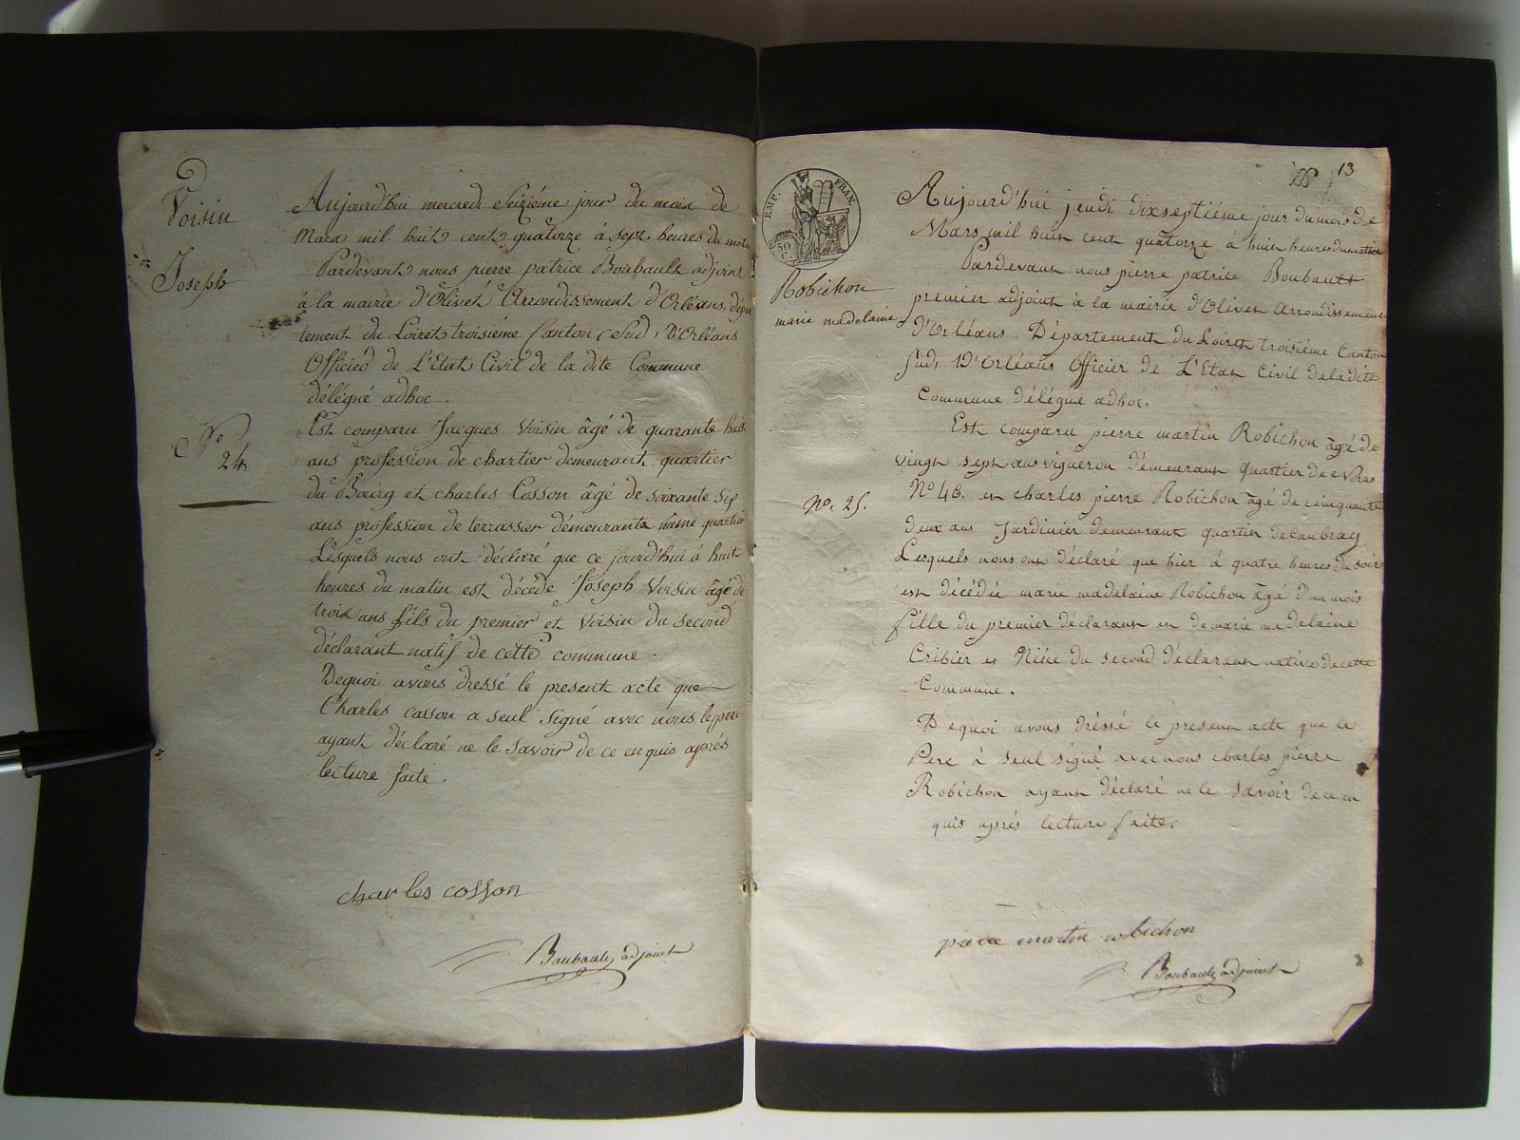 Voisin
Joseph
N° 24
Aujourd'hui mercredi Seizième jour du mois de
Mars mil huit cent quatorze à sept heures du matin
Pardevant nous pierre patrice Boubault adjoint
à la mairie d'Olivet Arrondissement d'Orléans, dépar
tement du Loiret troisième Canton, Sud, D'Orléans
Officier de L'Etat Civil de la dite Commune
délégué adhoc.
Est comparu Jacques Voisin âgé de quarante huit
ans profession de chartier demeurant quartier
du Bourg et charles Cosson âgé de soixante six
ans profession de terrassier demeurants même quartier
Lesquels nous ont déclaré que ce jourd'hui à huit
heures du matin est décédé Joseph Voisin âgé de
trois ans fils du premier et Voisin du second
déclarant natif de cette commune.
Dequoi avons dressé le present acte que
Charles Cosson a seul signé avec nous le pere
ayant déclaré ne le savoir de ce enquis après
lecture faite.
charles cosson
Boubault adjoint
13
EMP. FRAN.
Robichon
marie madelaine
No. 25.
Aujourd'hui jeudi dixseptième jour du mois de
Mars mil huit cent quatorze à huit heures du matin
Pardevant nous pierre patrice Boubault
premier adjoint à la mairie d'Olivet arrondissement
d'Orléans Département du Loiret troisième Canton
sud, D'orléans Officier de L'Etat Civil de la dite
Commune délégué adhoc.
Est comparu pierre martin Robichon âgé de
vingt sept ans vigneron demeurant quartier de
No 48. et charles pierre Robichon âgé de cinquante
deux ans Jardinier demeurant quartier de Caubray
Lesquels nous ont déclaré que hier à quatre heures du soir
est décédée marie madelaine Robichon âgé d'un mois
fille du premier déclarant et de marie madelaine
Cribier et Nièce du second déclarant native de cette
Commune.
Dequoi avons dréssé le present acte que le
Pere à seul signé avec nous charles pierre
Robichon ayant déclaré ne le savoir de ce en
quis après lecture faite.
pierre martin robichon
Boubault adjoint